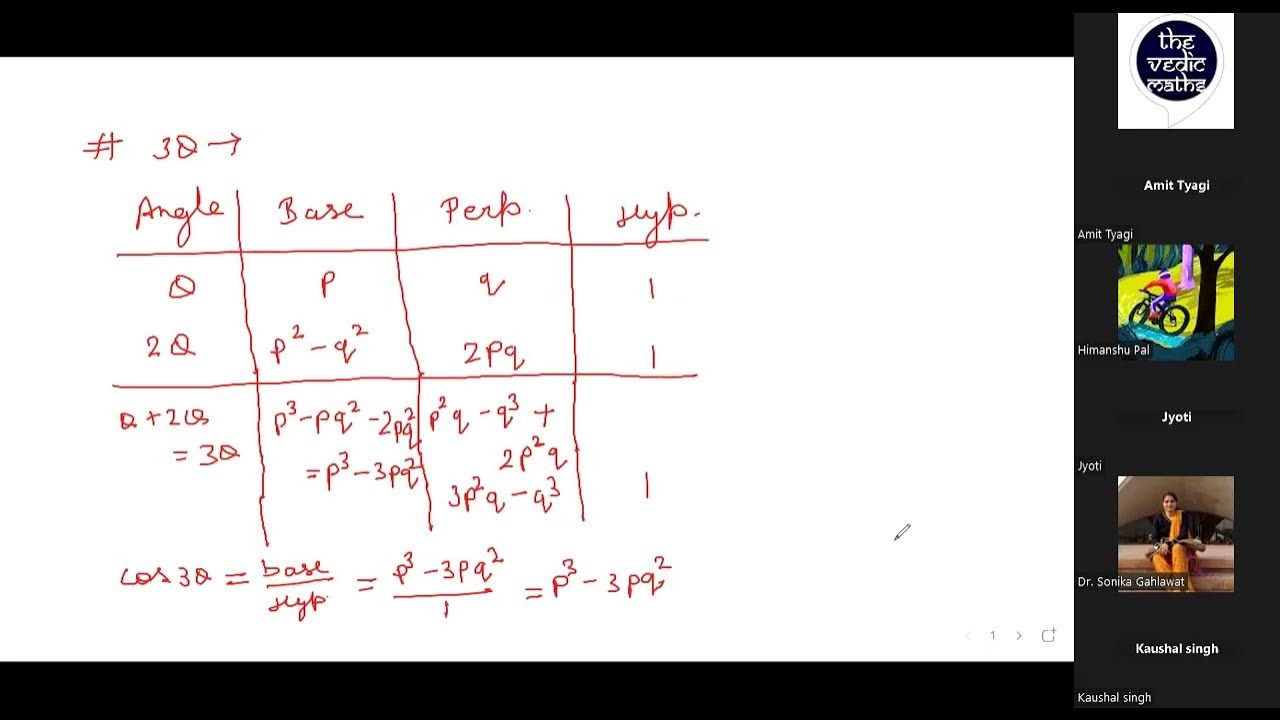 # 3θ →
Angle Base Perp. Hyp.
θ p q 1
2θ p² - q² 2pq 1
θ + 2θ p³ - pq² - 2pq² p²q - q³ +
= 3θ = p³ - 3pq² 2p²q
3p²q - q³ 1
cos 3θ = base/Hyp. = p³ - 3pq²/1 = p³ - 3pq²
1
the
vedic
maths
Amit Tyagi
Amit Tyagi
Himanshu Pal
Jyoti
Jyoti
Dr. Sonika Gahlawat
Kaushal singh
Kaushal singh